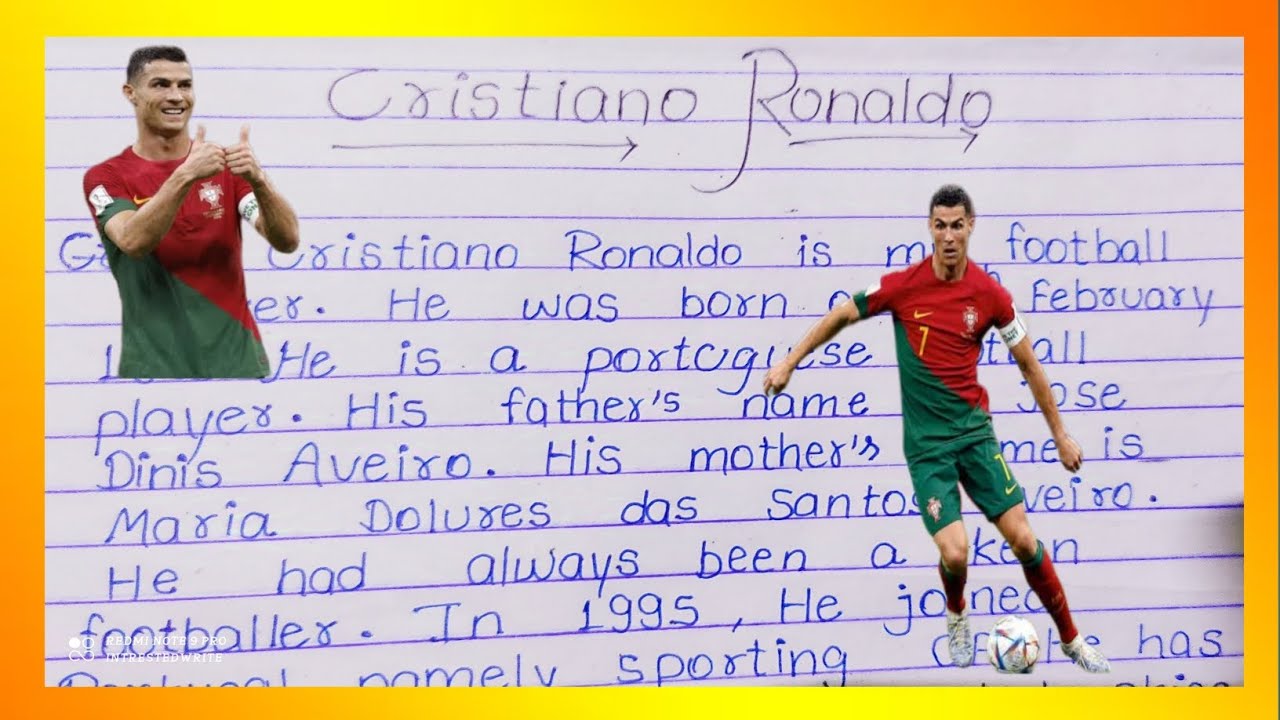 Cristiano Ronaldo
Cristiano Ronaldo is football
He was born February
He is a portuguese
player. His father's name Jose
Dinis Aveiro. His mother's is
Maria Dolures das Santos
He had always been a keen
footballer. In 1995, He joined
namely sporting has
7
REDMI NOTE 9 PRO
INTRESTEDWRITE